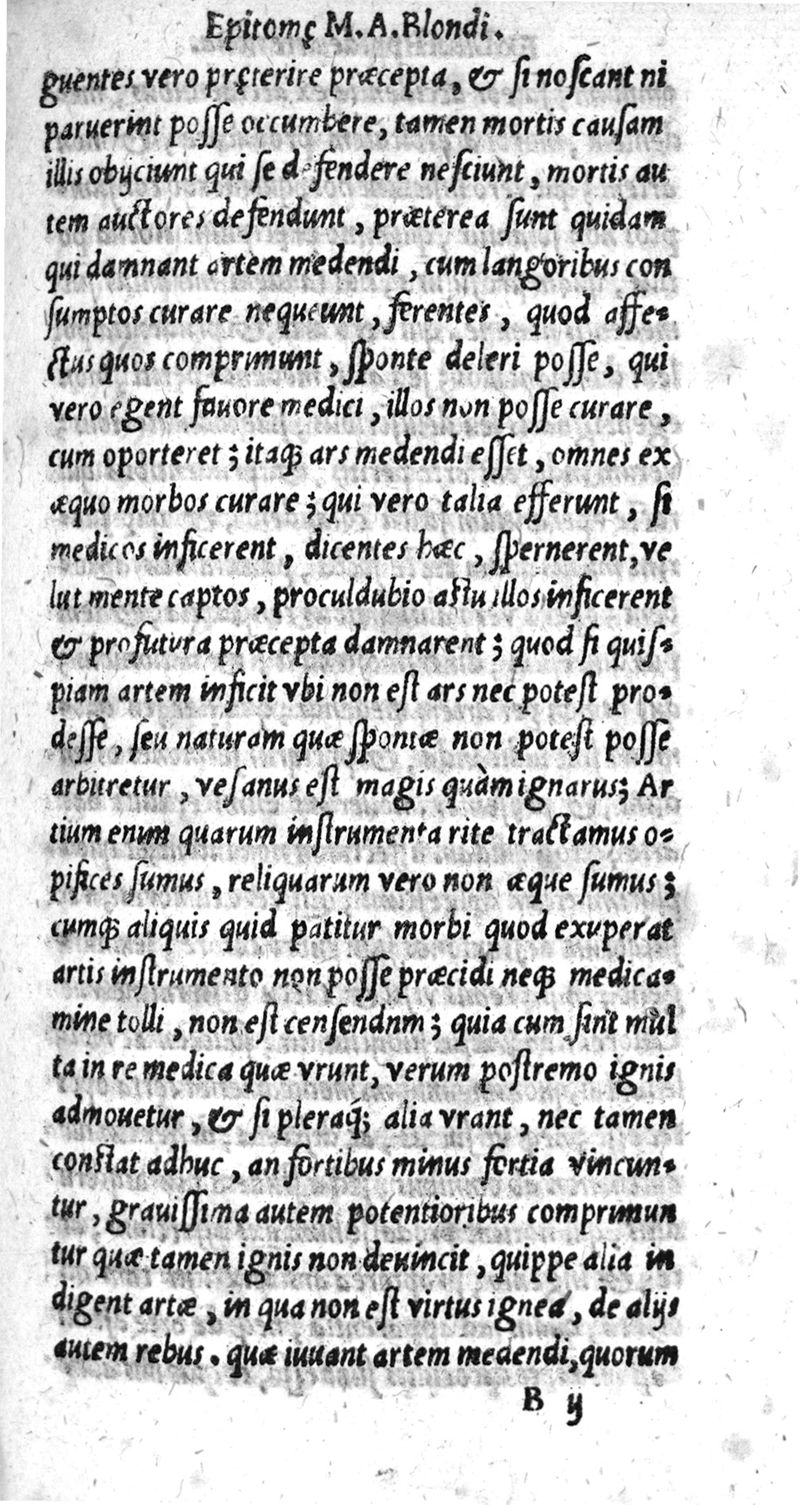 Epitomę M.A.Blondi.
guentes vero pręterire præcepta, & si noscant ni
paruerint posse occumbere, tamen mortis causam
illis obijciunt qui se defendere nesciunt, mortis au
tem auctores defendunt, præterea sunt quidam
qui damnant artem medendi, cum langoribus con
sumptos curare nequeunt, ferentes, quod affe-
ctus quos comprimunt, sponte deleri posse, qui
vero egent fauore medici, illos non posse curare,
cum oporteret; itaq; ars medendi esset, omnes ex
æquo morbos curare; qui vero talia efferunt, si
medicos inficerent, dicentes hæc, spernerent, ve
lut mente captos, proculdubio astu illos inficerent
& profutura præcepta damnarent; quod si quis-
piam artem inficit vbi non est ars nec potest pro-
desse, seu naturam quæ spontæ non potest posse
arbitretur, vesanus est magis quàm ignarus; Ar
tium enim quarum instrumenta rite tractamus o-
pifices sumus, reliquarum vero non æque sumus;
cumq; aliquis quid patitur morbi quod exuperat
artis instrumento non posse præcidi neq; medica-
mine tolli, non est censendnm; quia cum sint mul
ta in re medica quæ vrunt, verum postremo ignis
admouetur, & si pleraq́; alia vrant, nec tamen
constat adhuc, an fortibus minus fortia vincun-
tur, grauissima autem potentioribus comprimun
tur quæ tamen ignis non deuincit, quippe alia in
digent artæ, in qua non est virtus ignea, de alijs
autem rebus. quæ iuuant artem medendi, quorum
B ij